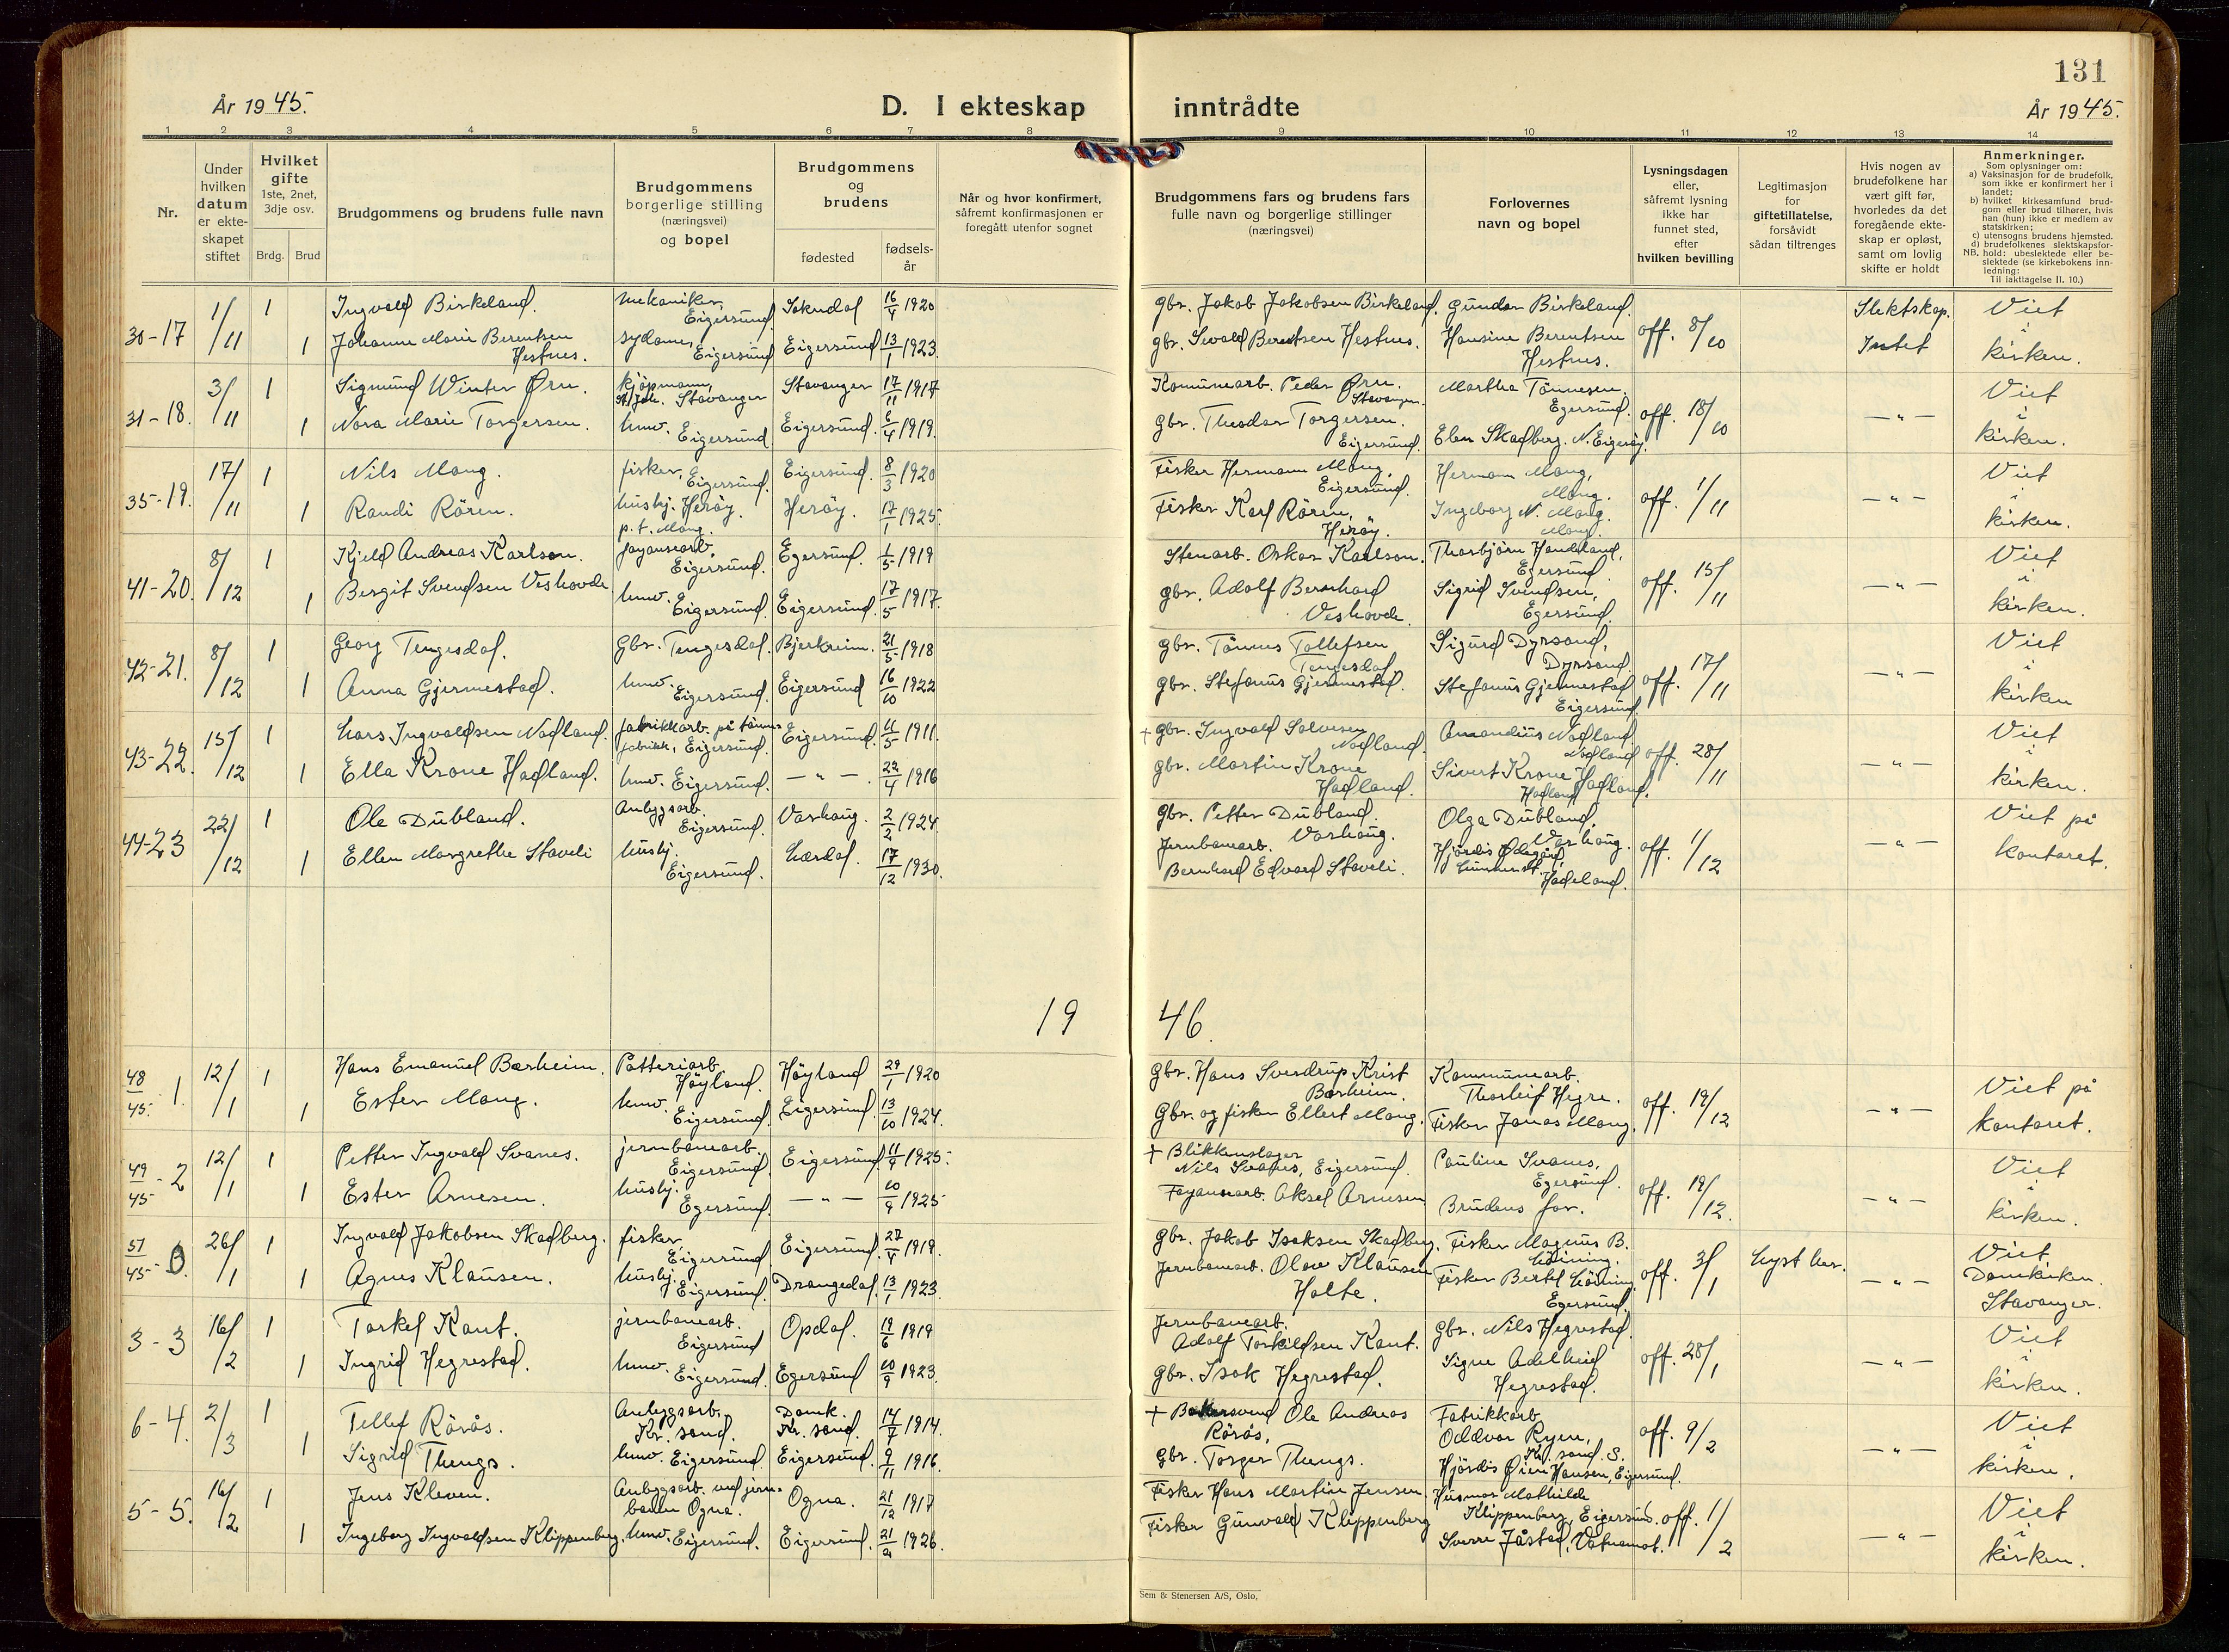 131
År 1945.
D. I ekteskap inntrådte
År 1945.
1 2 3 4 5 6 7 8 9 10 11 12 13 14
Nr.
Under hvilken datum er ekte-skapet stiftet
Hvilket gifte 1ste, 2net, 3dje osv.
Brdg. Brud
Brudgommens og brudens fulle navn
Brudgommens borgerlige stilling (næringsvei) og bopel
Brudgommens og brudens
fødested
fødsels-år
Når og hvor konfirmert, såfremt konfirmasjonen er foregått utenfor sognet
Brudgommens fars og brudens fars fulle navn og borgerlige stillinger (næringsvei)
Forlovernes navn og bopel
Lysningsdagen eller, såfremt lysning ikke har funnet sted, efter hvilken bevilling
Legitimasjon for giftetillatelse, forsåvidt sådan tiltrenges
Hvis nogen av brudefolkene har vært gift før, hvorledes da det foregående ekte-skap er opløst, samt om lovlig skifte er holdt
Anmerkninger.
Som oplysninger om:
a) Vaksinasjon for de brudefolk, som ikke er konfirmert her i landet;
b) hvilket kirkesamfund brud-gom eller brud tilhører, hvis han (hun) ikke er medlem av statskirken;
c) utensogns brudens hjemsted.
d) brudefolkenes slektskapsfor-hold: ubeslektede eller be-slektede (se kirkebokens inn-ledning:
NB. Til iakttagelse II. 10.)
30-17 1/11 1 Ingvald Birkeland. mekaniker, Eigersund Sokndal 16/4 1920 gbr. Jakob Jakobsen Birkeland. Gunder Birkeland. off. 8/10 Slektskap. Viet
1 Johanne Marie Berentsen Hestnes. sydame, Eigersund Eigersund 13/1 1923. gbr. Sivald Berentsen Hestnes. Hansine Berentsen Hestnes. Intet i kirken.
31-18. 3/11 1 Sigmund Winter Ørn. kjøpmann, Stavanger Stavanger 17/11 1917 Komunearb. Peder Ørn. Stavanger Martha Tönnesen, Egersund. off. 18/10 Viet
1 Nora Marie Torgersen. hmv. Eigersund Eigersund. 6/4 1919. gbr. Theodor Torgersen. Eigersund. Elen Skadberg. N. Eigerøy. —"— i kirken.
35-19. 17/11 1 Nils Mong. fisker, Eigersund. Eigersund. 8/3 1920 Fisker Hermann Mong, Eigersund. Hermann Mong, Mong. off. 1/11 Viet
1 Randi Rören. hushj. Herøy. p.t. Mong. Herøy. 17/1 1925. Fisker Karl Rören, Herøy. Ingeborg N. Mong. Mong. —"— i kirken.
41-20. 8/12 1 Kjeld Andreas Karlson. fayansearb. Eigersund. Egersund. 1/5 1919 Stenarb. Oskar Karlson. Thorbjörn Handeland, Egersund. off. 15/11 Viet
1 Bergit Svendsen Veshovde hmv. Eigersund. Eigersund. 17/5 1917. gbr. Adolf Bernhard Veshovde. Sigrid Svendsen, Egersund. —"— i kirken.
42-21. 8/12 1 Georg Tengesdal. Gbr. Tengesdal. Bjerkreim. 21/5 1918 gbr. Tönnes Tollefsen Tengesdal Sigurd Dyrsand, Dyrsand. off. 17/11 Viet
1 Anna Gjermestad. hmv. Eigersund. Eigersund 16/10 1922 gbr. Stefanus Gjermestad. Stefanus Gjermestad Eigersund. —"— i kirken
43-22. 15/12 Lars Ingvaldsen Nodland. fabrikkarb. på fabrikk, Eigersund. Eigersund. 4/5 1911. + gbr. Ingvald Salvesen Nodland. Amandius Nodland, Nodland off. 28/11 Viet
1 Ella Krone Hadland. hmv. Eigersund. —"—. 22/4 1916 gbr. Martin Krone Hadland. Sivert Krone Hadland, Hadland. —"— i kirken.
44-23 22/12 1 Ole Dubland. Anlggsarb. Eigersund. Varhaug. 2/2 1924. gbr. Petter Dubland. Varhaug. Olga Dubland. Varhaug. off. 1/12 Viet på
1 Ellen Margrethe Staveli hushj. Eigersund. Lærdal. 17/12 1930. Jernbanearb. Bernhard Edvard Staveli. Hjördis Ødegård, Hadeland. —"— kontoret.
19 46.
48/45 1. 12/1 1 Hans Emanuel Bærheim. Potteriarb. Höyland. Höyland 29/1 1920 Gbr. Hans Sverdrup Krist Bærheim. Kommunearb. Thorleif Hegre. off. 19/12 Viet på
1 Ester Mong. hmv. Eigersund. Eigersund. 13/10 1924. Gbr. og fisker Ellert Mong. Fisker Jonas Mong. —"— kontoret.
49/45 - 2 12/1 1 Petter Ingvald Svanes. jernbanearb. Eigersund. Eigersund 11/9 1925. + Blikkenslager Nils Svanes, Eigersund. Pauline Svanes, Egersund. off. 19/12. Viet
1 Ester Arnesen. hushj. Egersund. —"— 10/9 1925 Fayansearb. Aksel Arnesen Brudens far. —"— i kirken.
51/45 - 0. 26/1 1 Ingvald Jakobsen Skadberg. fisker, Eigersund. Eigersund. 27/4 1919. Gbr. Jakob Isaksen Skadberg. Fisker Magnus B. Lövning. off. 3/1 Lyst her. Viet Domkirken.
1 Agnes Klausen. hushj. Eigersund. Drangedal. 13/1 1923. Jernbanearb. Olav Klausen Holte. Fisker Bertel Lövning Egersund. —"— Stavanger.
3-3 16/2 1 Torkel Kant. jernbanearb. Eigersund Opdal. 19/6 1919 Jernbanearb. Adolf Torkildsen Kant. Gbr. Nils Hegrestad. off. 28/1 Viet
1 Ingrid Hegrestad. hmv. Eigersund. Egersund 10/9 1923. gbr. Isak Hegrestad. Signe Adelheid Hegrestad. —"— i kirken.
6-4. 2/3 1 Tellef Rörås. Anleggsarb. Kr. sand. Domk. Kr. sand. 14/7 1914. + Bakersvend Ole Andreas Rörås, Fabrikkarb. Oddvar Ryen, Kr. sand. S. off. 9/2 Viet
1 Sigrid Thengs. hmv. Eigersund. Eigersund. 9/11 1916. gbr. Torger Thengs. Hjördis Øine Hansen, Eigersund. —"— i kirken.
5-5. 16/2 1 Jens Kleven. Anleggsarb. ved jern-banen Ogna. Ogna. 21/12 1917 Fisker Hans Martin Jensen Husmor Mathilde Klippenberg, Eigersund. off. 1/2 Viet
1 Ingeborg Ingvaldsen Klippenberg. hmv. Eigersund. Eigersund. 21/2 1926. Fisker Gunvald Klippenberg Sverre Jåstad, Vatnamot. —"— i kirken.
Sem & Stenersen A/S, Oslo,